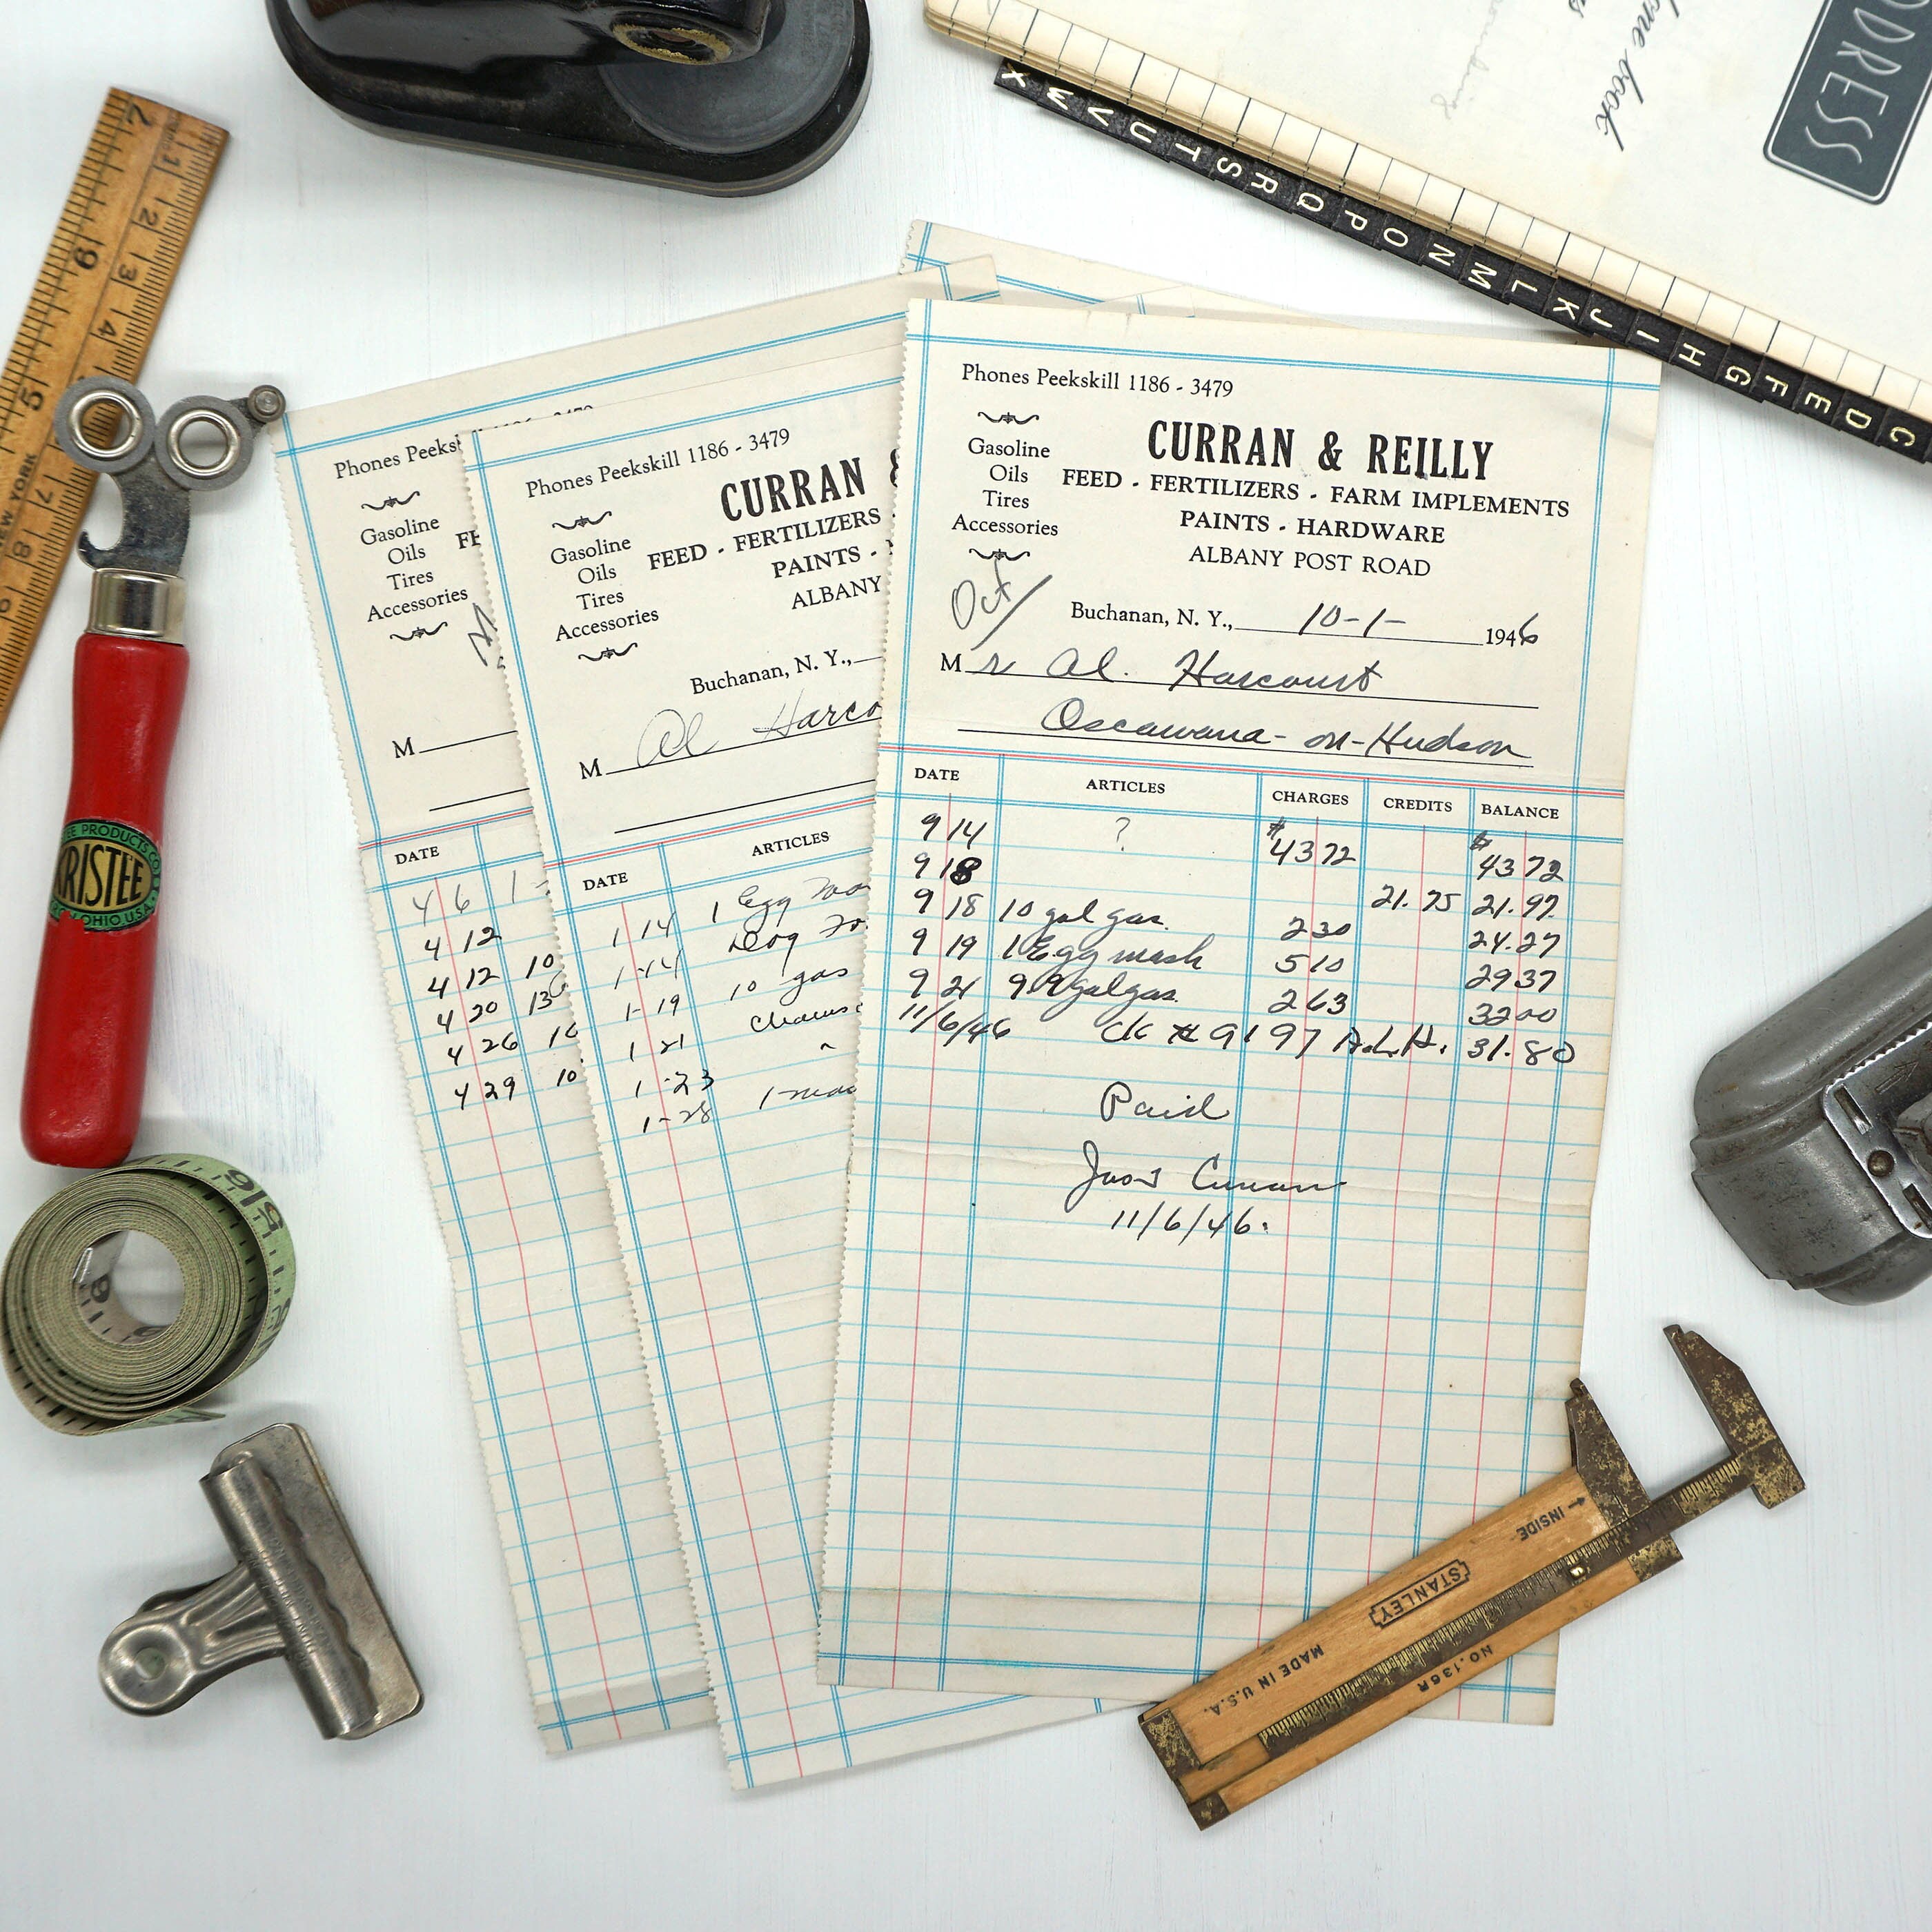 DRESS
X W V U T S R Q P O N M L K J I H G F E D C
NEW YORK
KRISTEE
PRODUCTS CO
OHIO U.S.A.
Phones Peeks
Gasoline
Oils FE
Tires
Accessories
M
DATE
4 6 1
4 12
4 12 10
4 20 13
4 26
4 29 10
Phones Peekskill 1186 - 3479
CURRAN &
Gasoline
Oils
Tires
Accessories
FEED - FERTILIZERS
PAINTS -
ALBANY
Buchanan, N. Y.,
M Al Harco
DATE ARTICLES
1 14 1 Egg
1-14 Dog
1-19 10 gas
1 21
1-23 "
1-28 1
Phones Peekskill 1186 - 3479
CURRAN & REILLY
Gasoline
Oils
Tires
Accessories
FEED - FERTILIZERS - FARM IMPLEMENTS
PAINTS - HARDWARE
ALBANY POST ROAD
Oct
Buchanan, N. Y., 10-1- 1946
Mr Al. Harcourt
Oscawana-on-Hudson
DATE ARTICLES CHARGES CREDITS BALANCE
9 14 ? $43 72 $43 72
9 18 21.75 21.97
9 18 10 gal gas. 2 30 24.27
9 19 1 Egg mash 5 10 29 37
9 21 9.9 gal gas. 2 63 32 00
11/6/46 Ck # 9197 A.L.H. 31.80
Paid
Curran
11/6/46.
INSIDE
STANLEY
MADE IN U.S.A.
NO. 136R